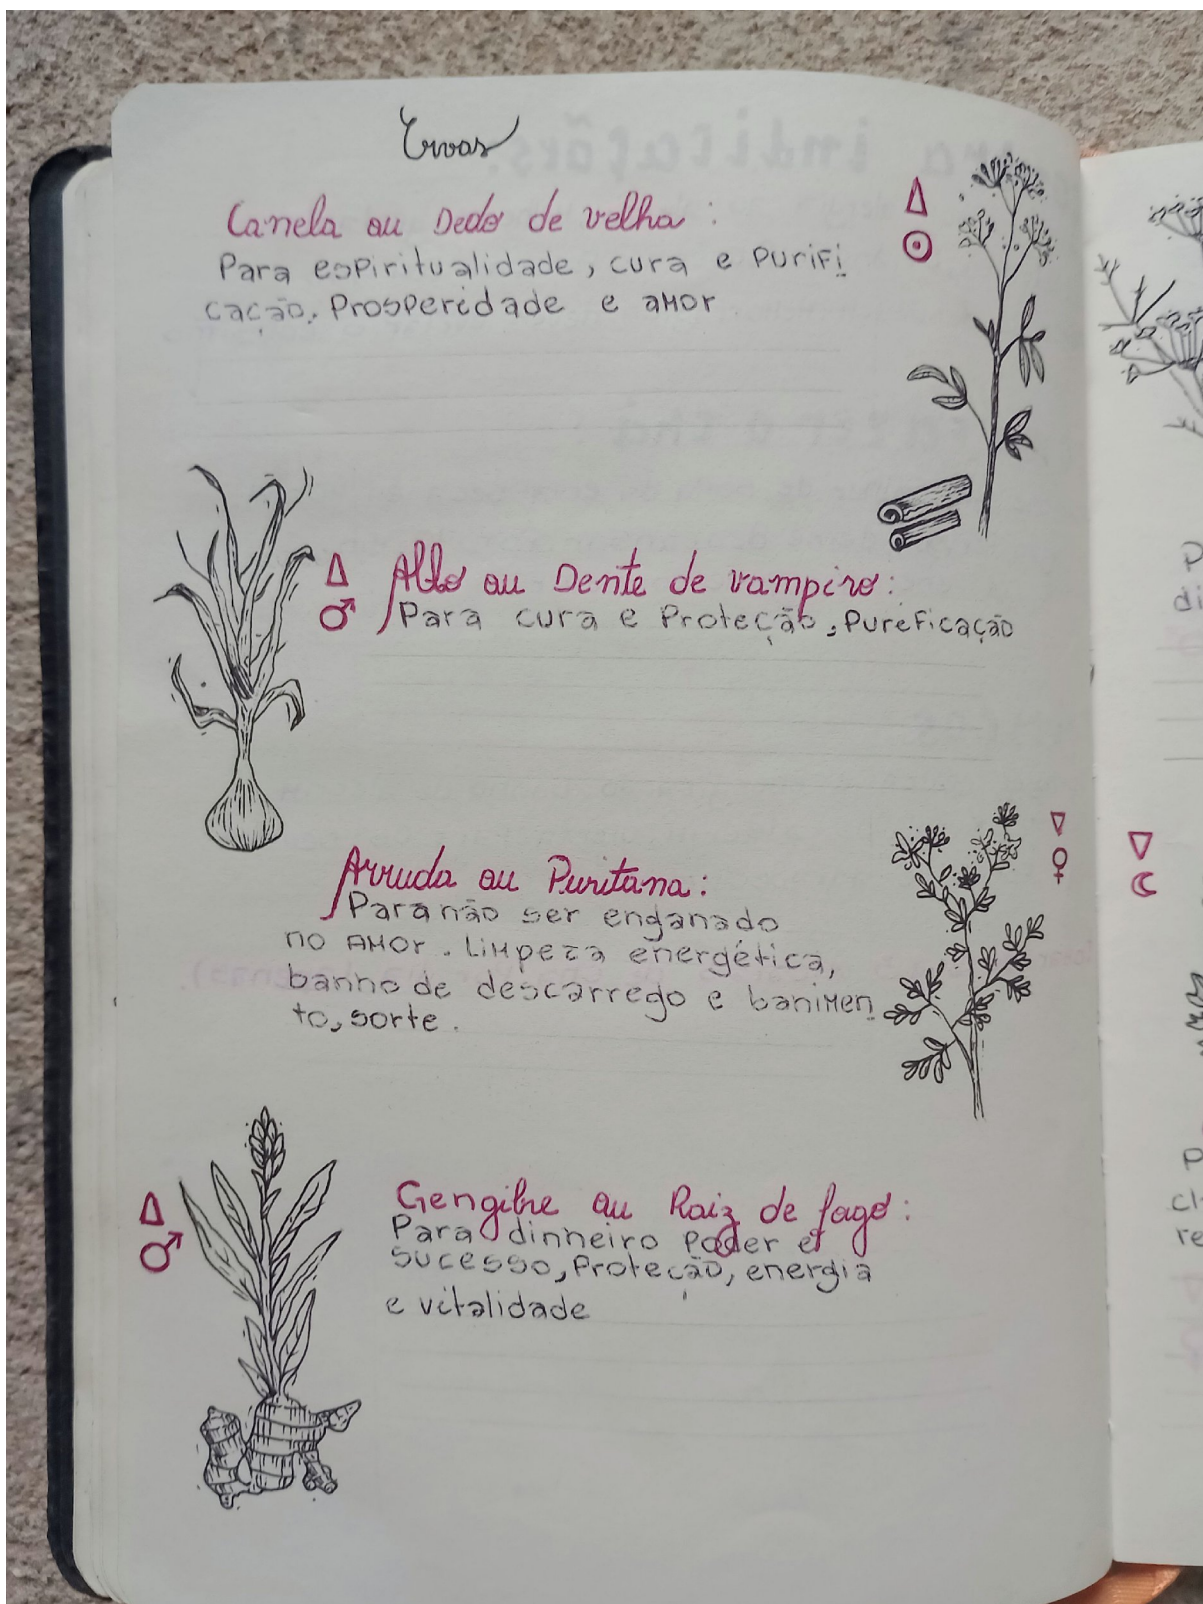 Ervas
Canela ou Dedo de velha :
Para espiritualidade, cura e purifi
cação. Prosperidade e amor
△
☉
△
♂
Alho ou Dente de vampiro :
Para cura e Proteção, Pureficação
▽
♀
▽
☾
Arruda ou Puritana :
Para não ser enganado
no amor. Limpeza energética,
banho de descarrego e banimen
to, sorte.
△
♂
Gengibre ou Raiz de fogo :
Para dinheiro poder e
sucesso, Proteção, energia
e vitalidade